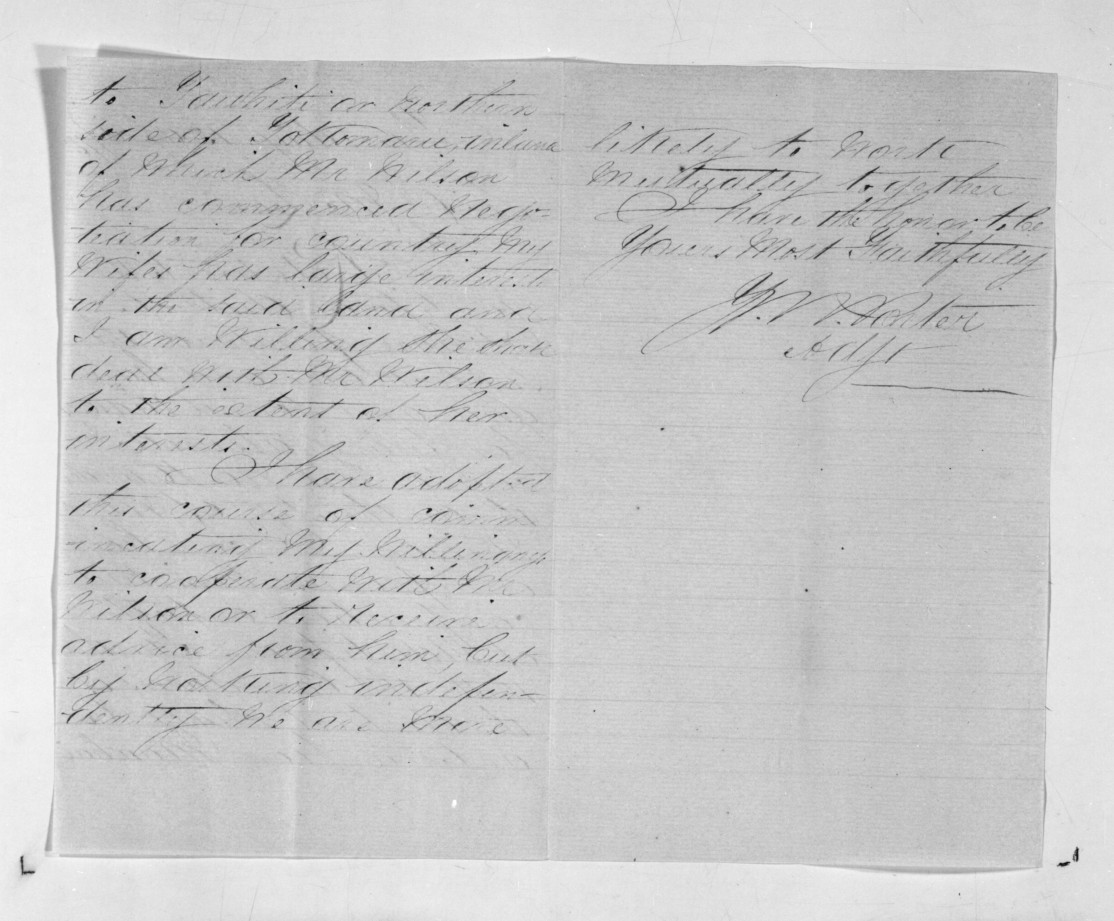 to Tawhiti or northern
side of Tokomaru, inland
of which Mr Wilson
has commenced Nego-
tiation for country My
Wife has large interests
in the said land and
I am Willing She should
deal with Mr Wilson
to the extent of her
interests.
I have adopted
this course of comm
-unicating My Willingness
to cooperate with Mr
Wilson or to receive
advice from him, but
by Working indepen-
dently We are More
likely to Work
Mutually together
I have the honor to be
Yours Most Faithfully
Porter
Adjt